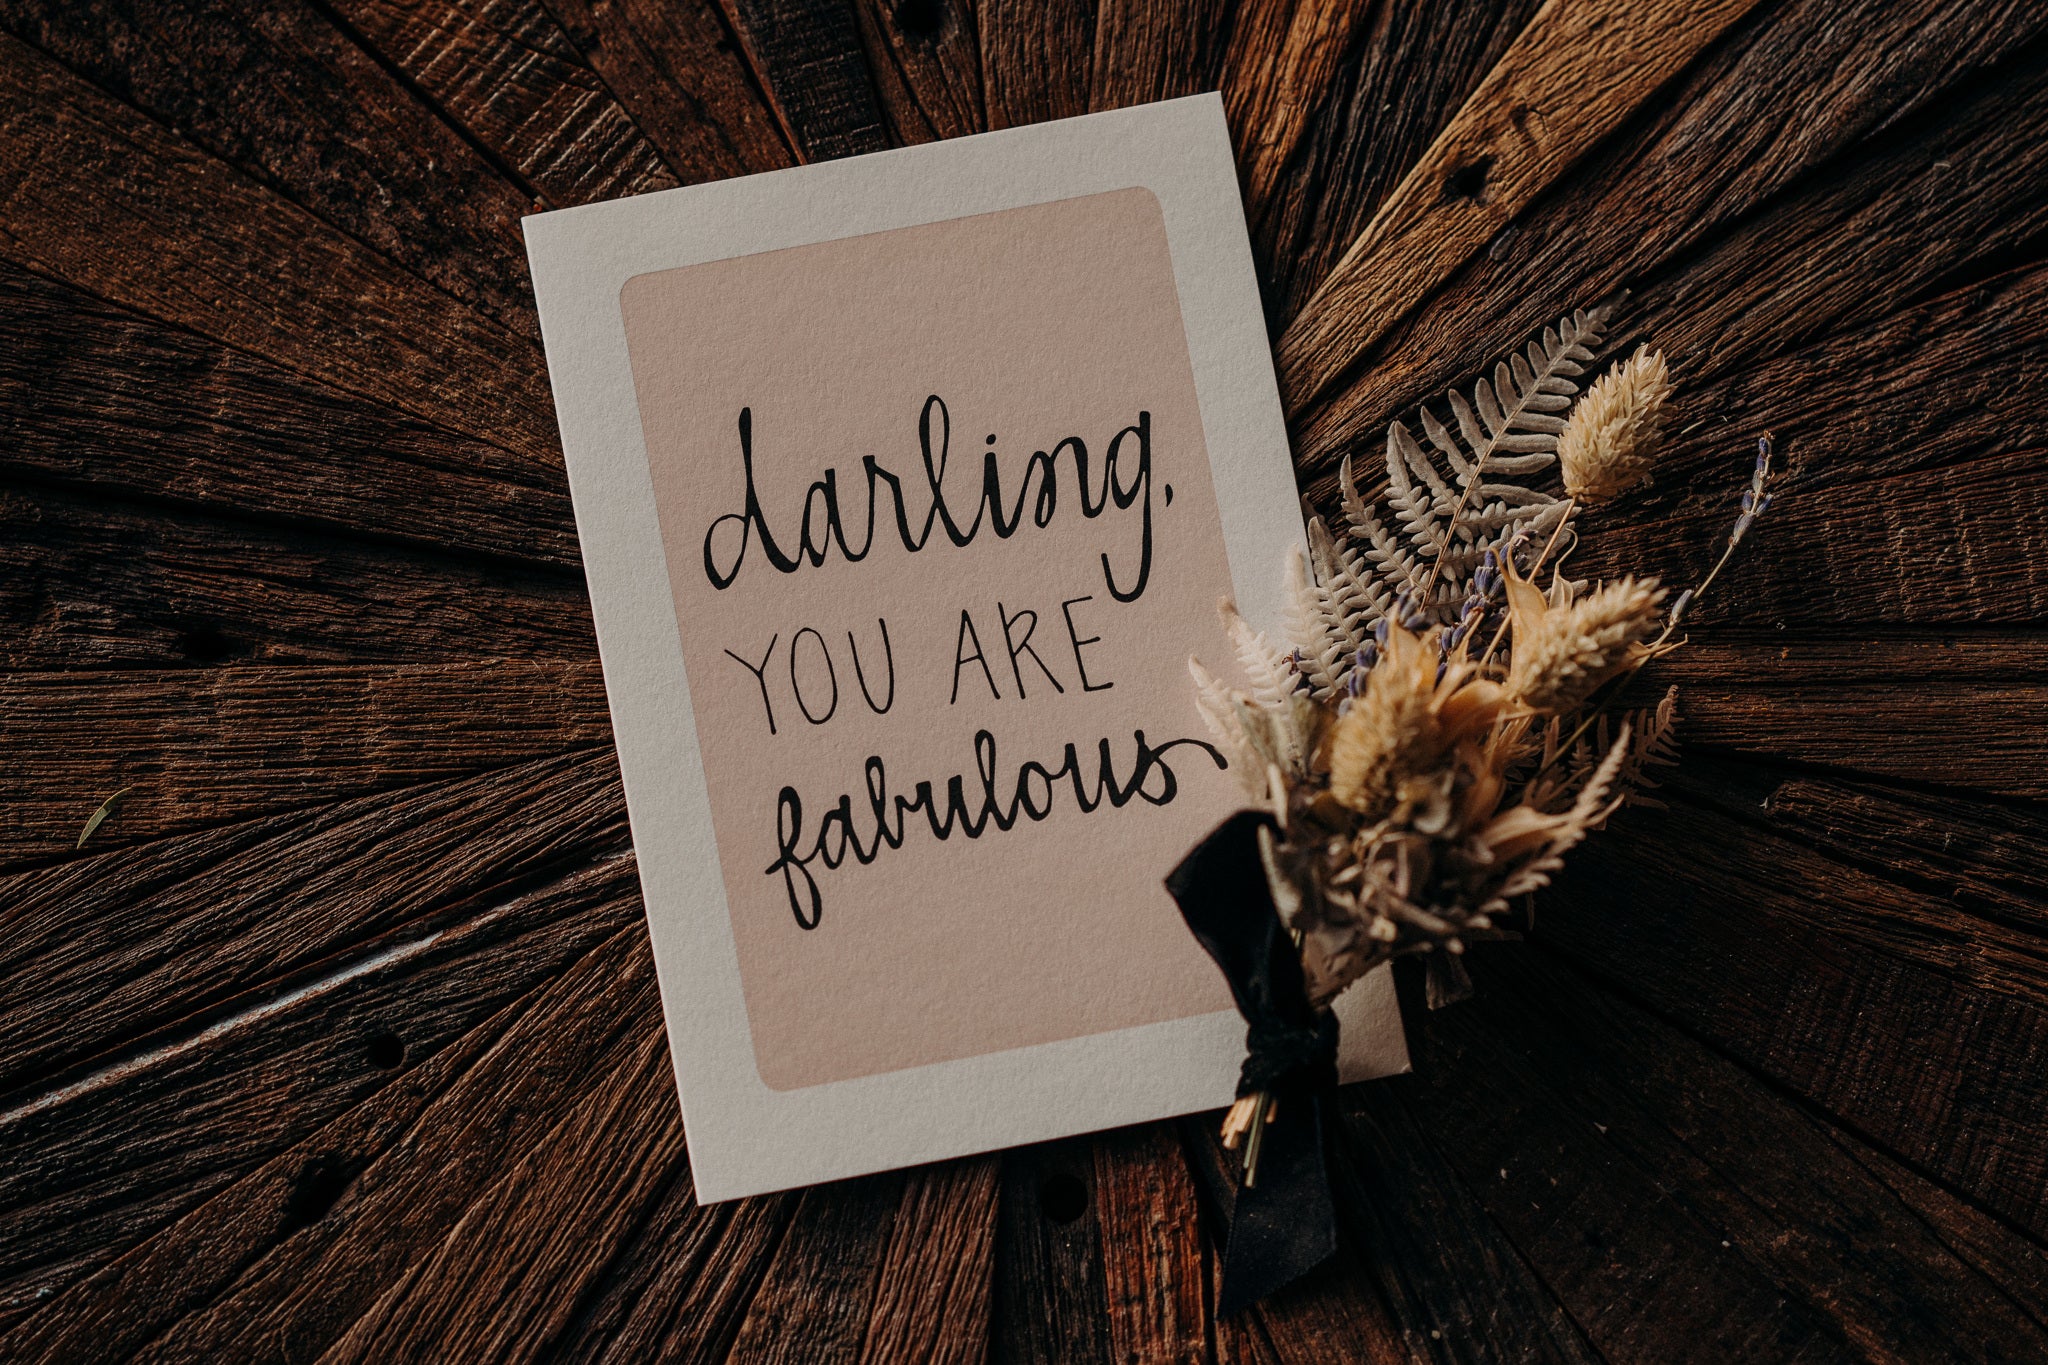 darling,
YOU ARE
fabulous